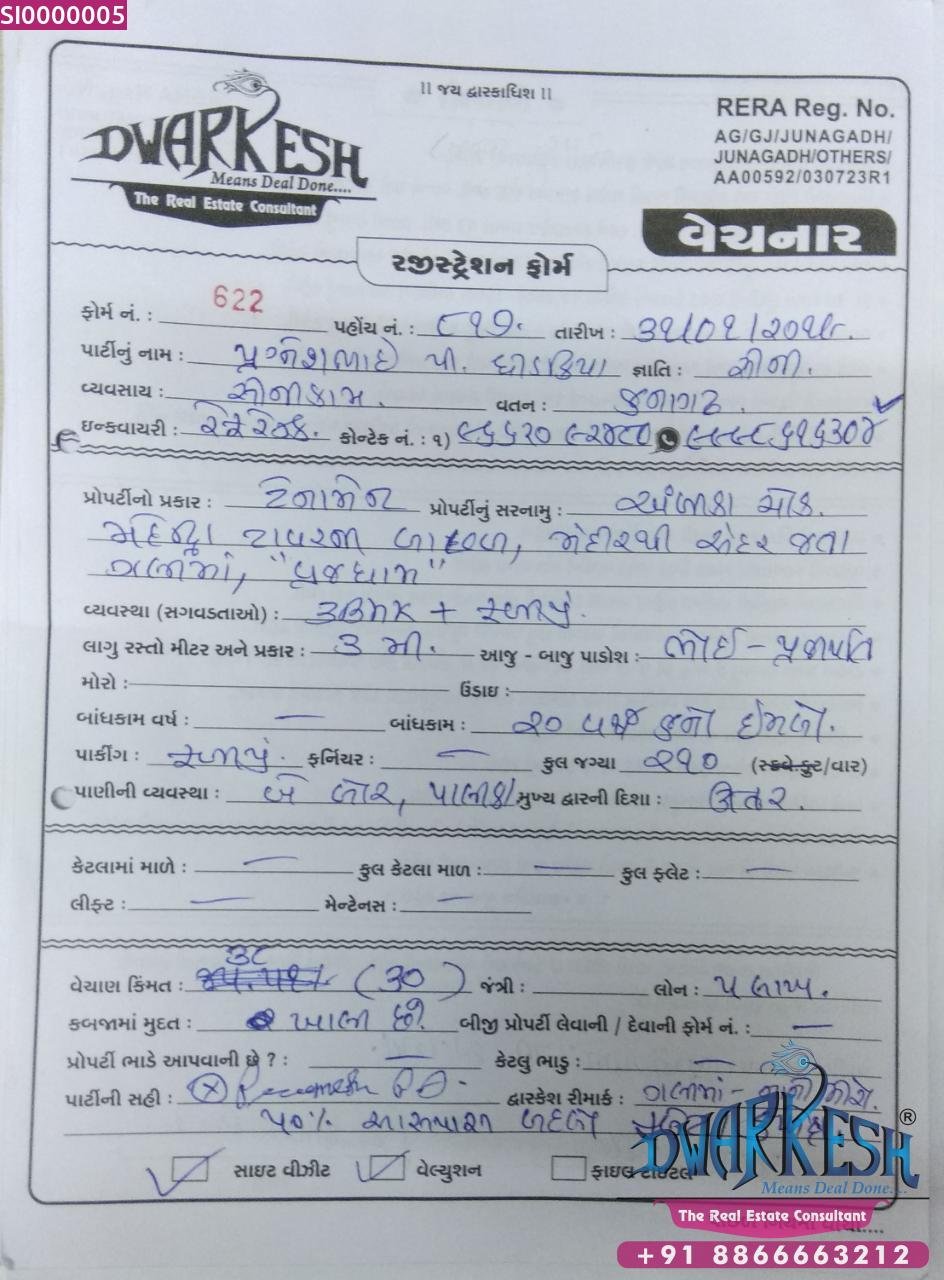 SI0000005
|| જય દ્વારકાધિશ ||
DWARKESH
Means Deal Done....
The Real Estate Consultant
RERA Reg. No.
AG/GJ/JUNAGADH/
JUNAGADH/OTHERS/
AA00592/030723R1
વેચનાર
રજીસ્ટ્રેશન ફોર્મ
ફોર્મ નં. : 622 પહોંચ નં. : ૮૧૭. તારીખ : ૩૧/૦૧/૨૦૧૮.
પાર્ટીનું નામ : પ્રગ્નેશભાઈ પી. ધોડકિયા જ્ઞાતિ : સોની.
વ્યવસાય : સોનીકામ વતન : જુનાગઢ.
ઇન્કવાયરી : કોન્ટેક નં. : ૧) ૯૬૬૨૦ ૯૨૪૮૦ ૯૯૯૮૬૧૬૩૦૪
પ્રોપર્ટીનો પ્રકાર : ટેનામેન્ટ પ્રોપર્ટીનું સરનામુ : અંબીકા ચોક.
ટાવરની બાજુમાં, મંદીરથી અંદર જતા
ગલીમાં, "વ્રજધામ"
વ્યવસ્થા (સગવડતાઓ) : 3BHK + રળાયું.
લાગુ રસ્તો મીટર અને પ્રકાર : ૩ મી. આજુ - બાજુ પાડોશ : ભોઈ - પ્રજાપતિ
મોરો : ઉંડાઇ :
બાંધકામ વર્ષ : — બાંધકામ : ૨૦ વર્ષ જુનો
પાર્કીંગ : ફર્નિચર : — કુલ જગ્યા ૨૧૦ (સ્કવે.ફુટ/વાર)
પાણીની વ્યવસ્થા : બે બોર, પાલીકા મુખ્ય દ્વારની દિશા : ઉતર.
કેટલામાં માળે : — કુલ કેટલા માળ : — કુલ ફ્લેટ : —
લીફ્ટ : — મેન્ટેનસ : —
૩૮
વેચાણ કિંમત : (૩૦) જંત્રી : લોન : ૫ લાખ.
કબજામાં મુદત : ખાલી છે. બીજી પ્રોપર્ટી લેવાની / દેવાની ફોર્મ નં. : —
પ્રોપર્ટી ભાડે આપવાની છે ? : — કેટલુ ભાડુ : —
પાર્ટીની સહી : દ્વારકેશ રીમાર્ક : ગલીમાં -
૫૦% આસપાસ
સાઇટ વીઝીટ વેલ્યુશન ફાઇલ ટાઇટલ
DWARKESH ®
Means Deal Done....
The Real Estate Consultant
+91 8866663212